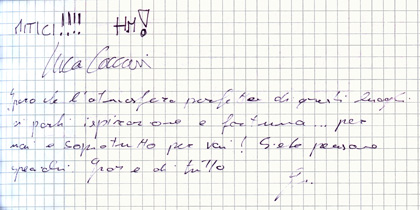 AMICI!!!! HM!
Luca Ceccari
l'atmosfera perfetta di questi luoghi
vi porti ispirazione e fortuna... per
noi e soprattutto per voi! Siete persone
speciali! Grazie di tutto